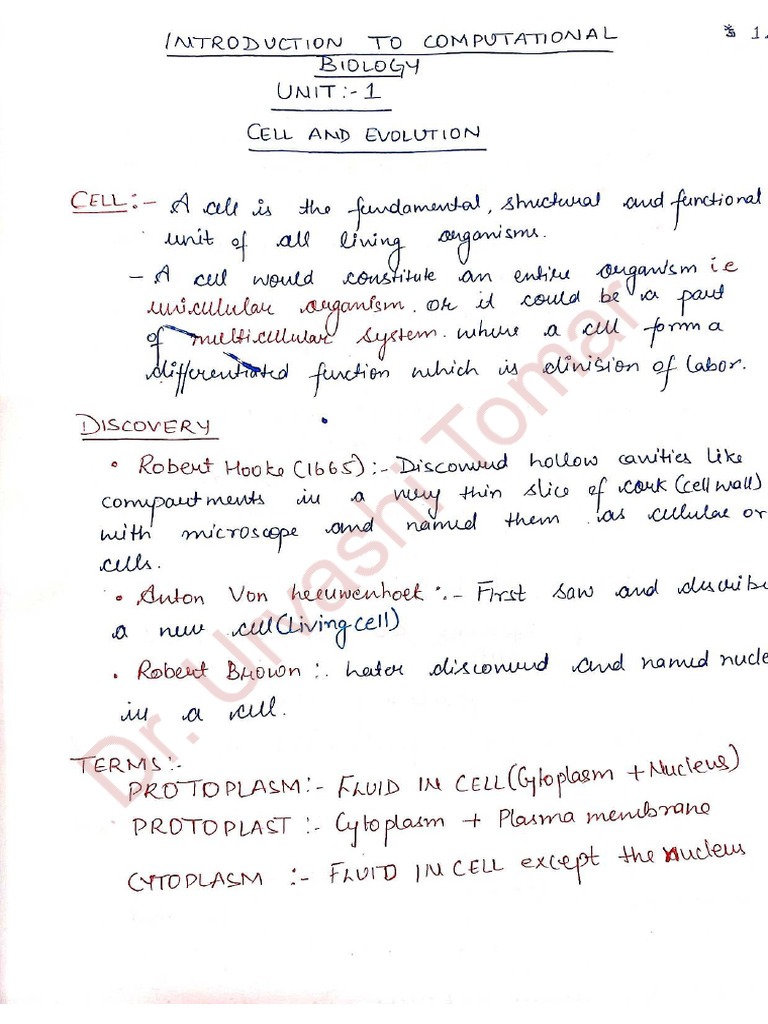 INTRODUCTION TO COMPUTATIONAL
1.
BIOLOGY
UNIT:-1
CELL AND EVOLUTION
CELL:- A cell is the fundamental, structural and functional
unit of all living organisms.
- A cell would constitute an entire organism ie
unicellular organism. or it could be a part
of multicellular system. where a cell form a
differentiated function which is division of labor.
DISCOVERY
• Robert Hooke (1665):- Discovered hollow cavities like
compartments in a very thin slice of cork (cell wall)
with microscope and named them as cellulae or
cells.
• Anton Von Leeuwenhoek:- First saw and describe
a new cell (Living cell)
• Robert Brown:. Later discovered and named nucle
in a cell.
TERMS:-
PROTOPLASM:- FLUID IN CELL (Cytoplasm + Nucleus)
PROTOPLAST:- Cytoplasm + Plasma membrane
CYTOPLASM :- FLUID IN CELL except the nucleus
Dr. Urvashi Tomar